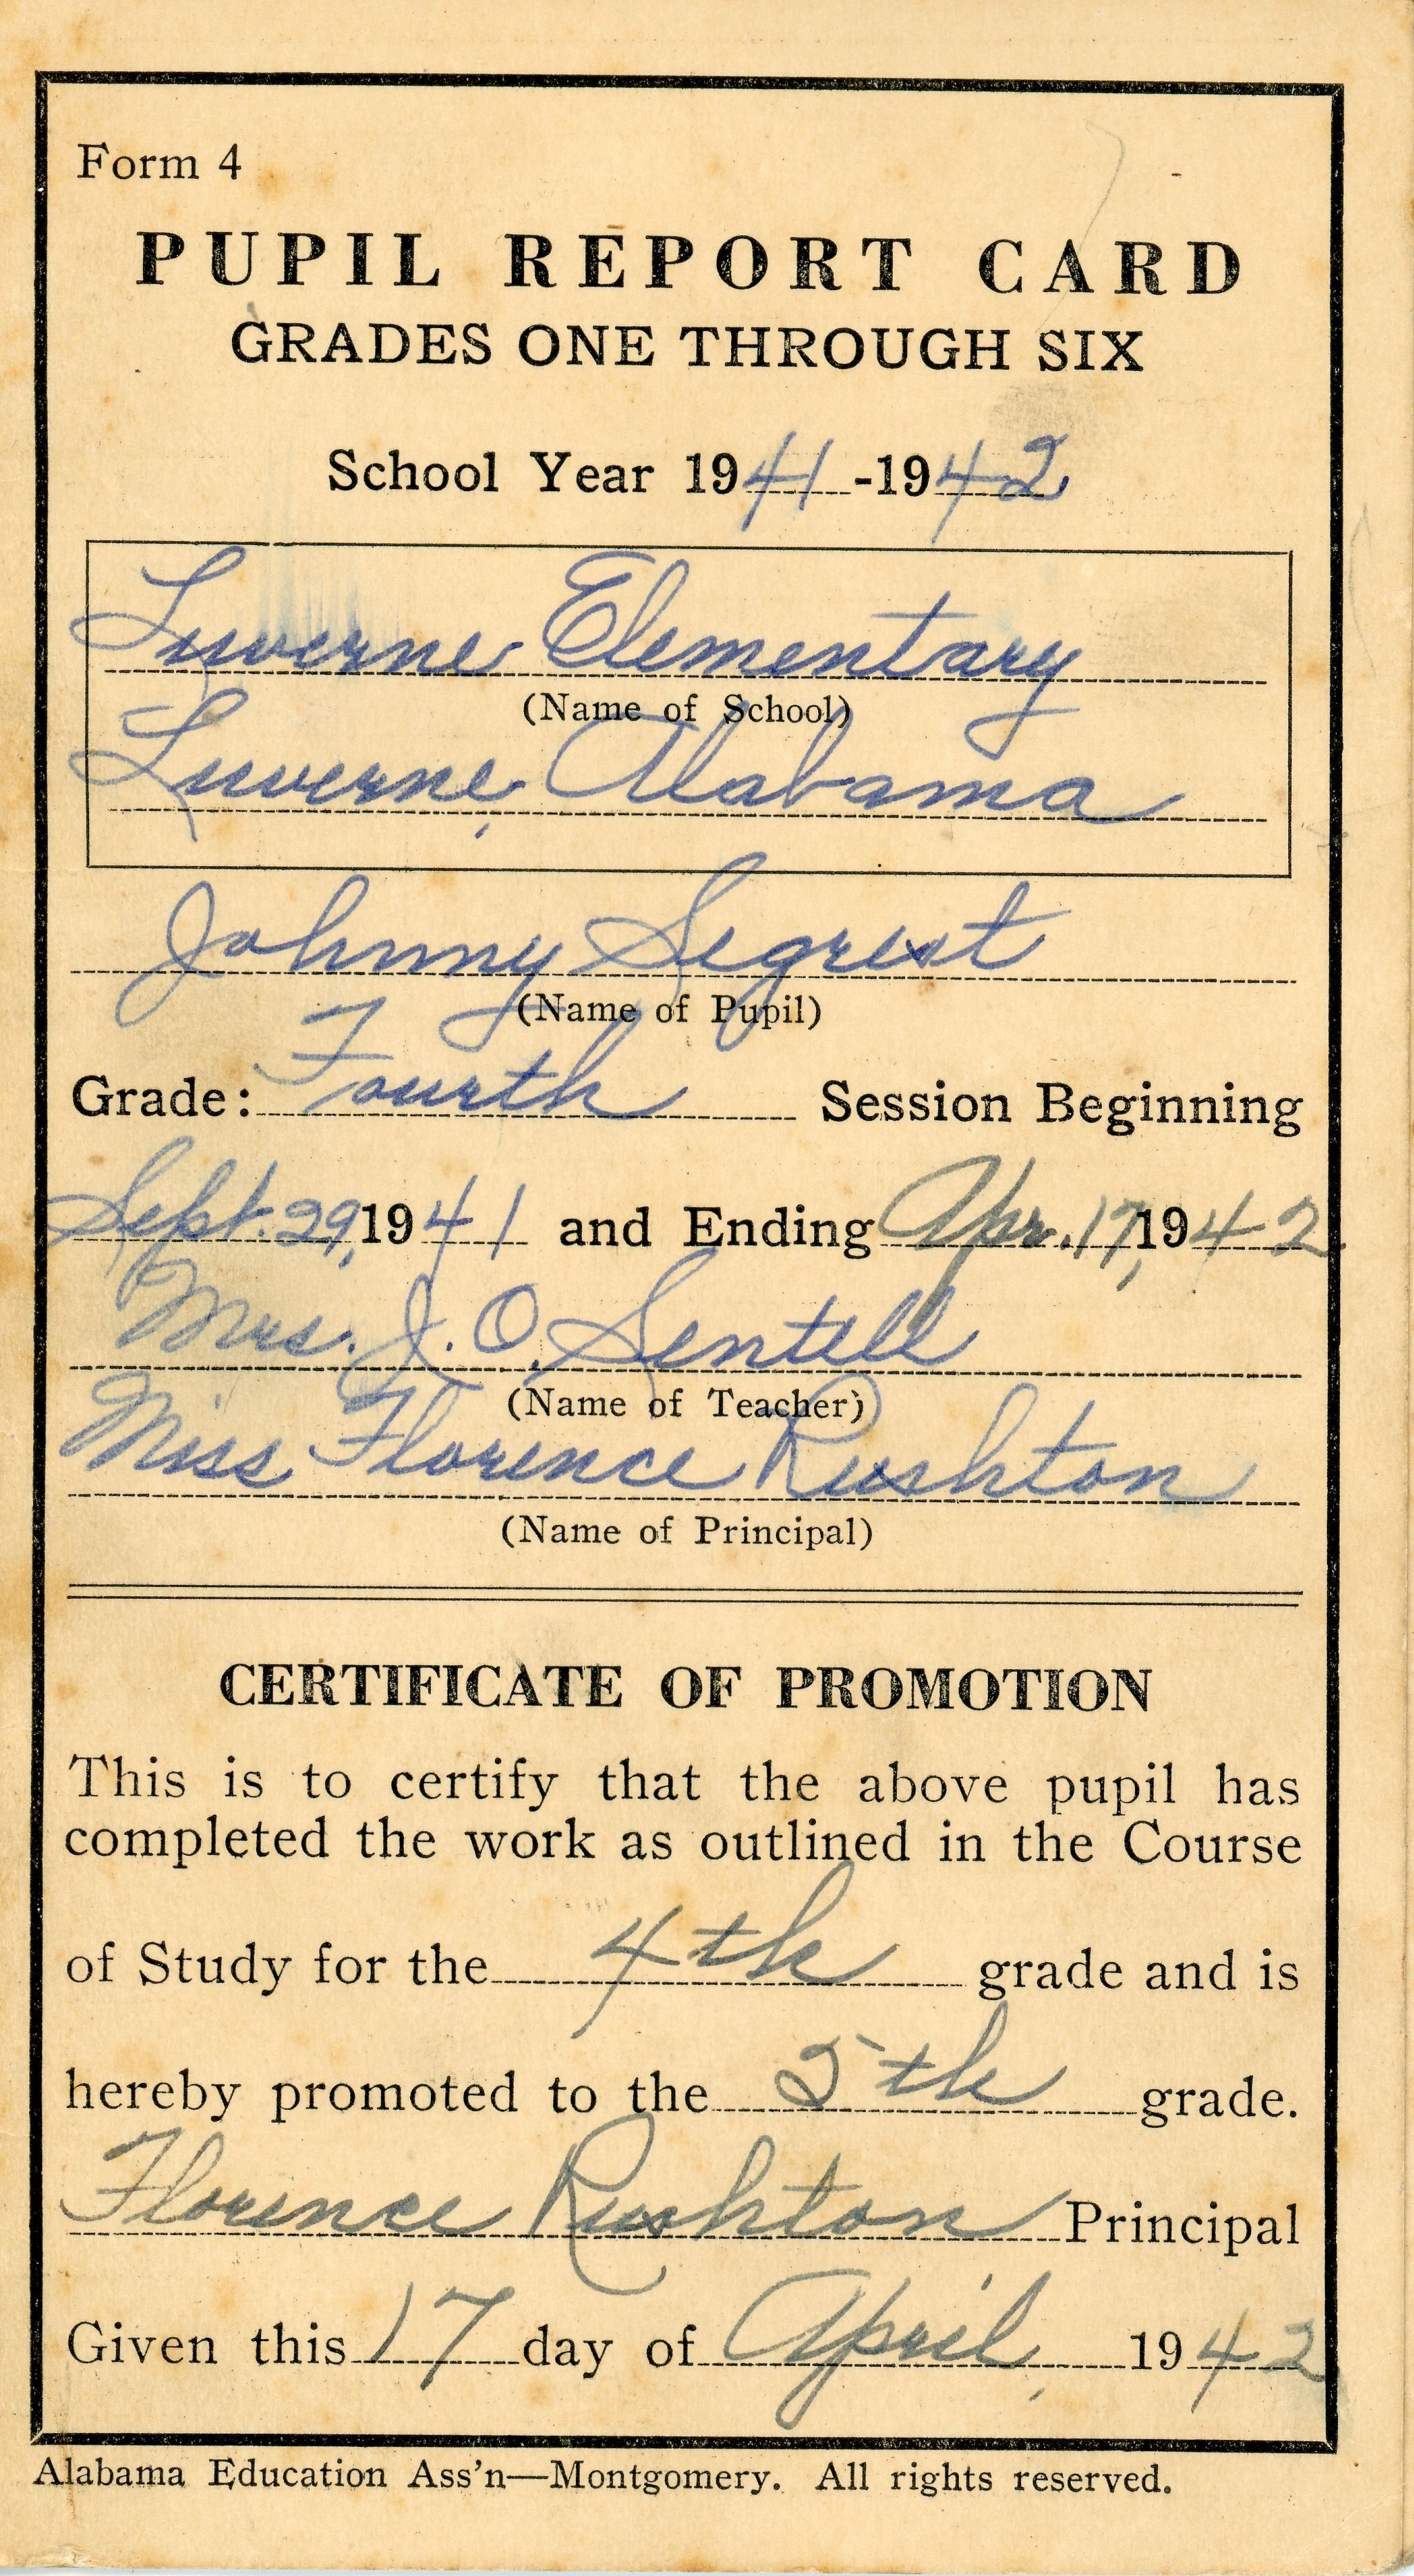 Form 4
PUPIL REPORT CARD
GRADES ONE THROUGH SIX
School Year 1941-1942
Luverne Elementary
(Name of School)
Luverne, Alabama
Johnny Segrest
(Name of Pupil)
Grade: Fourth Session Beginning
Sept. 29, 1941 and Ending Apr. 17, 1942
Mrs. J. O. Sentell
(Name of Teacher)
Miss Florence Rushton
(Name of Principal)
CERTIFICATE OF PROMOTION
This is to certify that the above pupil has
completed the work as outlined in the Course
of Study for the 4th grade and is
hereby promoted to the 5th grade.
Florence Rushton Principal
Given this 17 day of April, 1942
Alabama Education Ass'n—Montgomery. All rights reserved.